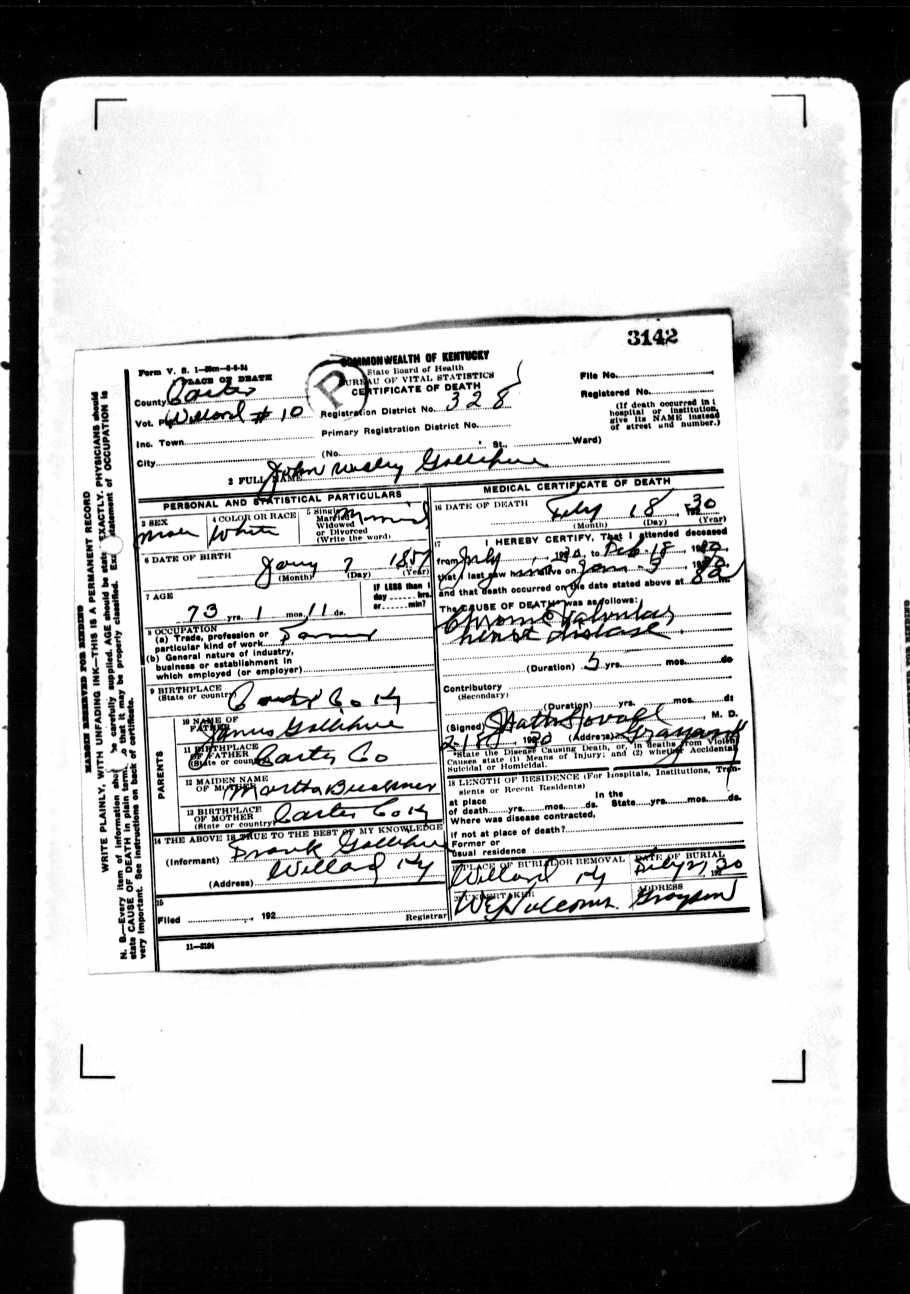 3142
Form V. S. 1—50m—6-6-24
COMMONWEALTH OF KENTUCKY
State Board of Health
BUREAU OF VITAL STATISTICS
CERTIFICATE OF DEATH
R
PLACE OF DEATH
County Carter
Vot. Pct. Willard # 10
Inc. Town
City
Registration District No. 328
Primary Registration District No.
(No. St., Ward)
File No.
Registered No.
(If death occurred in a
hospital or institution,
give its NAME instead
of street and number.)
2 FULL NAME John Wesley Gollihue
PERSONAL AND STATISTICAL PARTICULARS
3 SEX Male
4 COLOR OR RACE White
5 Single
Married
Widowed
or Divorced
(Write the word)
6 DATE OF BIRTH
Jany 7 1857
(Month) (Day) (Year)
7 AGE
73 yrs. 1 mos. 11 ds.
IF LESS than 1
day hrs.
or min?
8 OCCUPATION
(a) Trade, profession or
particular kind of work Farmer
(b) General nature of industry,
business or establishment in
which employed (or employer)
9 BIRTHPLACE
(State or country) Carter Co Ky
PARENTS
10 NAME OF
FATHER James Gollihue
11 BIRTHPLACE
OF FATHER
(State or country) Carter Co
12 MAIDEN NAME
OF MOTHER Martha Buckner
13 BIRTHPLACE
OF MOTHER
(State or country) Carter Co Ky
14 THE ABOVE IS TRUE TO THE BEST OF MY KNOWLEDGE
(Informant) Frank Gollihue
(Address) Willard Ky
15
Filed , 192 Registrar
11—3184
MEDICAL CERTIFICATE OF DEATH
16 DATE OF DEATH
Feby 18, 1930
(Month) (Day) (Year)
17 I HEREBY CERTIFY, That I attended deceased
from July , 1930, to Feb 18, 1930
that I last saw him alive on Jan 5 1930
and that death occurred on the date stated above at 8 a M
The CAUSE OF DEATH* was as follows:
Chronic Valvular
heart disease
(Duration) 5 yrs. mos. ds
Contributory
(Secondary)
(Duration) yrs. mos. ds
(Signed) , M. D.
2-18, 1930 (Address) Grayson Ky
*State the Disease Causing Death, or, in deaths from Violent
Causes state (1) Means of Injury; and (2) whether Accidental,
Suicidal or Homicidal.
18 LENGTH OF RESIDENCE (For Hospitals, Institutions, Tran-
sients or Recent Residents)
at place In the
of death yrs. mos. ds. State yrs. mos. ds.
Where was disease contracted,
if not at place of death?
Former or
usual residence
19 PLACE OF BURIAL OR REMOVAL DATE OF BURIAL
Willard Ky 1930
20 UNDERTAKER ADDRESS
Grayson
MARGIN RESERVED FOR BINDING
WRITE PLAINLY, WITH UNFADING INK—THIS IS A PERMANENT RECORD
N. B.—Every item of information should be carefully supplied. AGE should be stated EXACTLY. PHYSICIANS should
state CAUSE OF DEATH in plain terms, so that it may be properly classified. Exact statement of OCCUPATION is
very important. See instructions on back of certificate.